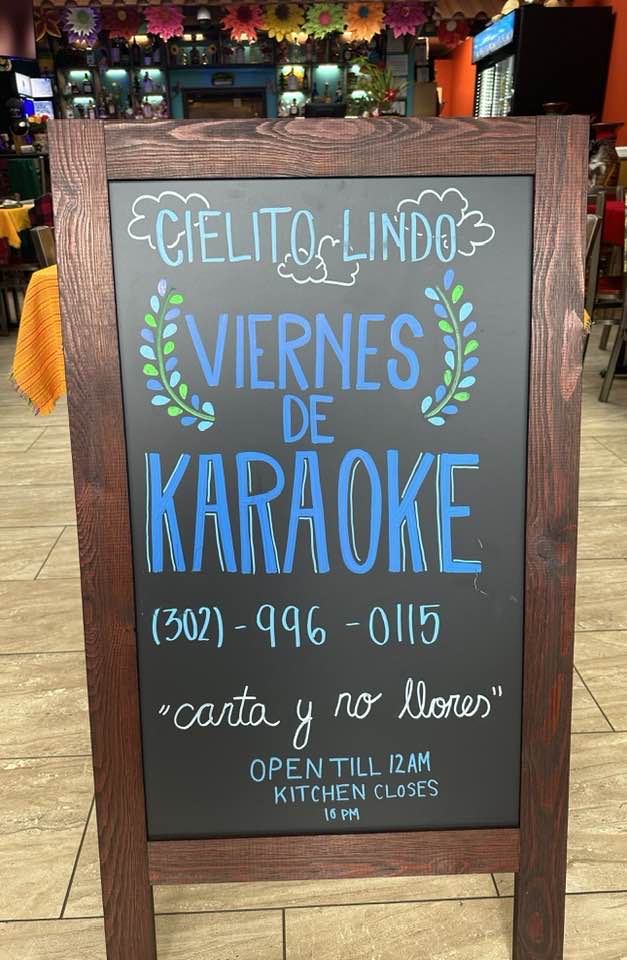 CIELITO LINDO
VIERNES
DE
KARAOKE
(302)-996-0115
"canta y no llores"
OPEN TILL 12AM
KITCHEN CLOSES
10 PM